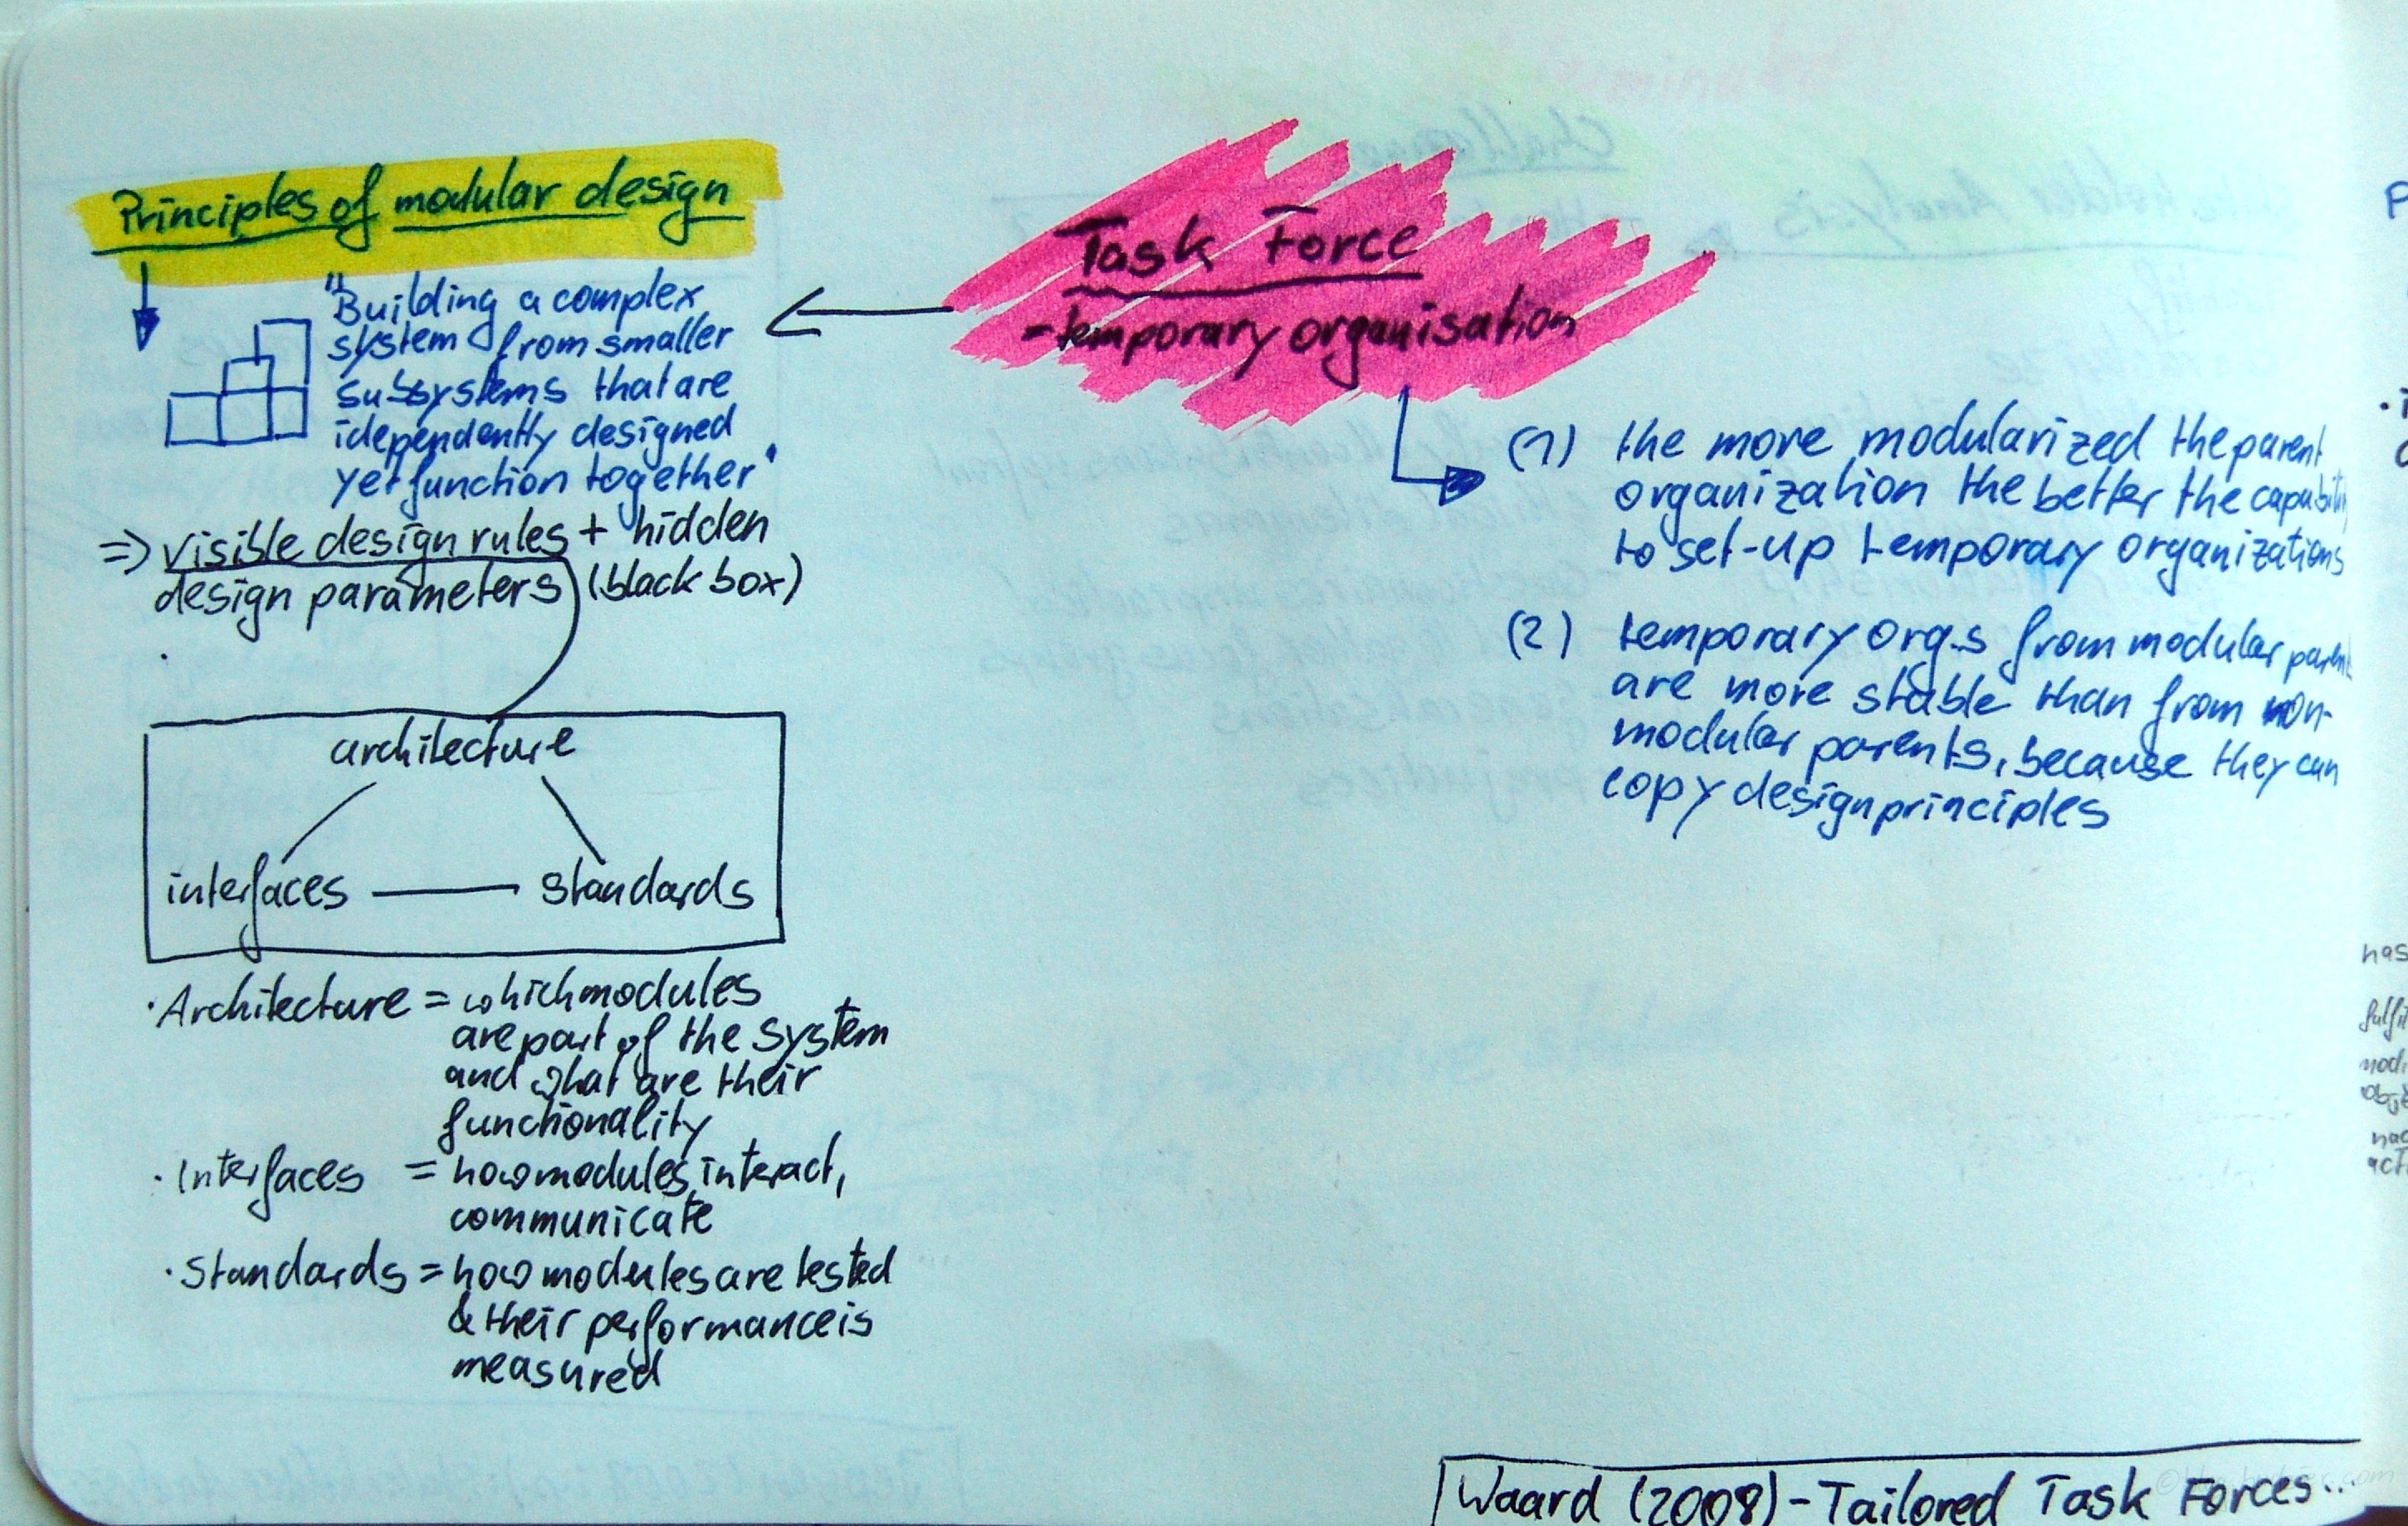 Principles of modular design
"Building a complex
system from smaller
subsystems that are
idependently designed
yet function together"
=> visible design rules + hidden
design parameters (black box)
architecture
interfaces — standards
· Architecture = which modules
are part of the system
and what are their
functionality
· Interfaces = how modules interact,
communicate
· Standards = how modules are tested
& their performance is
measured
Task Force
- temporary organisation
(1) the more modularized the parent
organization the better the capability
to set-up temporary organizations
(2) temporary org.s from modular parent
are more stable than from non-
modular parents, because they can
copy design principles
Waard (2008) - Tailored Task Forces...